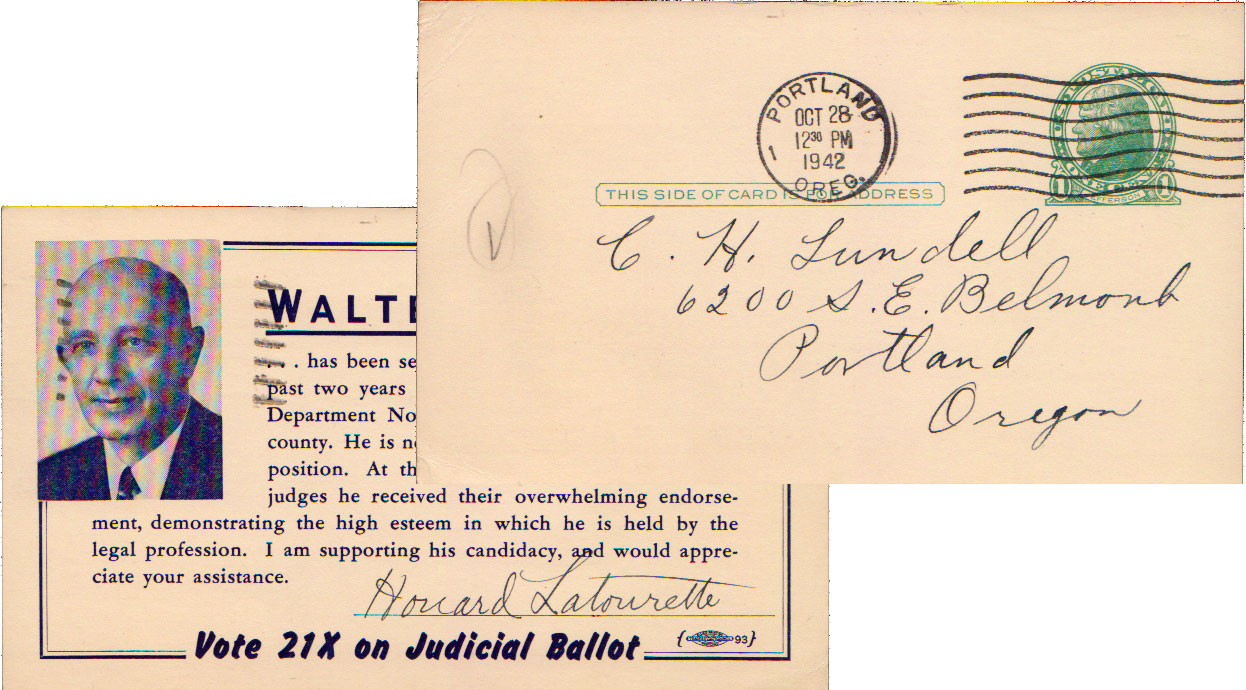 PORTLAND
OCT 28
12 30 PM
1942
1
OREG.
THIS SIDE OF CARD IS FOR ADDRESS
JEFFERSON
C. H. Lundell
6200 S.E. Belmont
Portland
Oregon
WALTE
. . . has been se
past two years
Department No
county. He is n
position. At th
judges he received their overwhelming endorse-
ment, demonstrating the high esteem in which he is held by the
legal profession. I am supporting his candidacy, and would appre-
ciate your assistance.
Howard Latourette
Vote 21X on Judicial Ballot
93